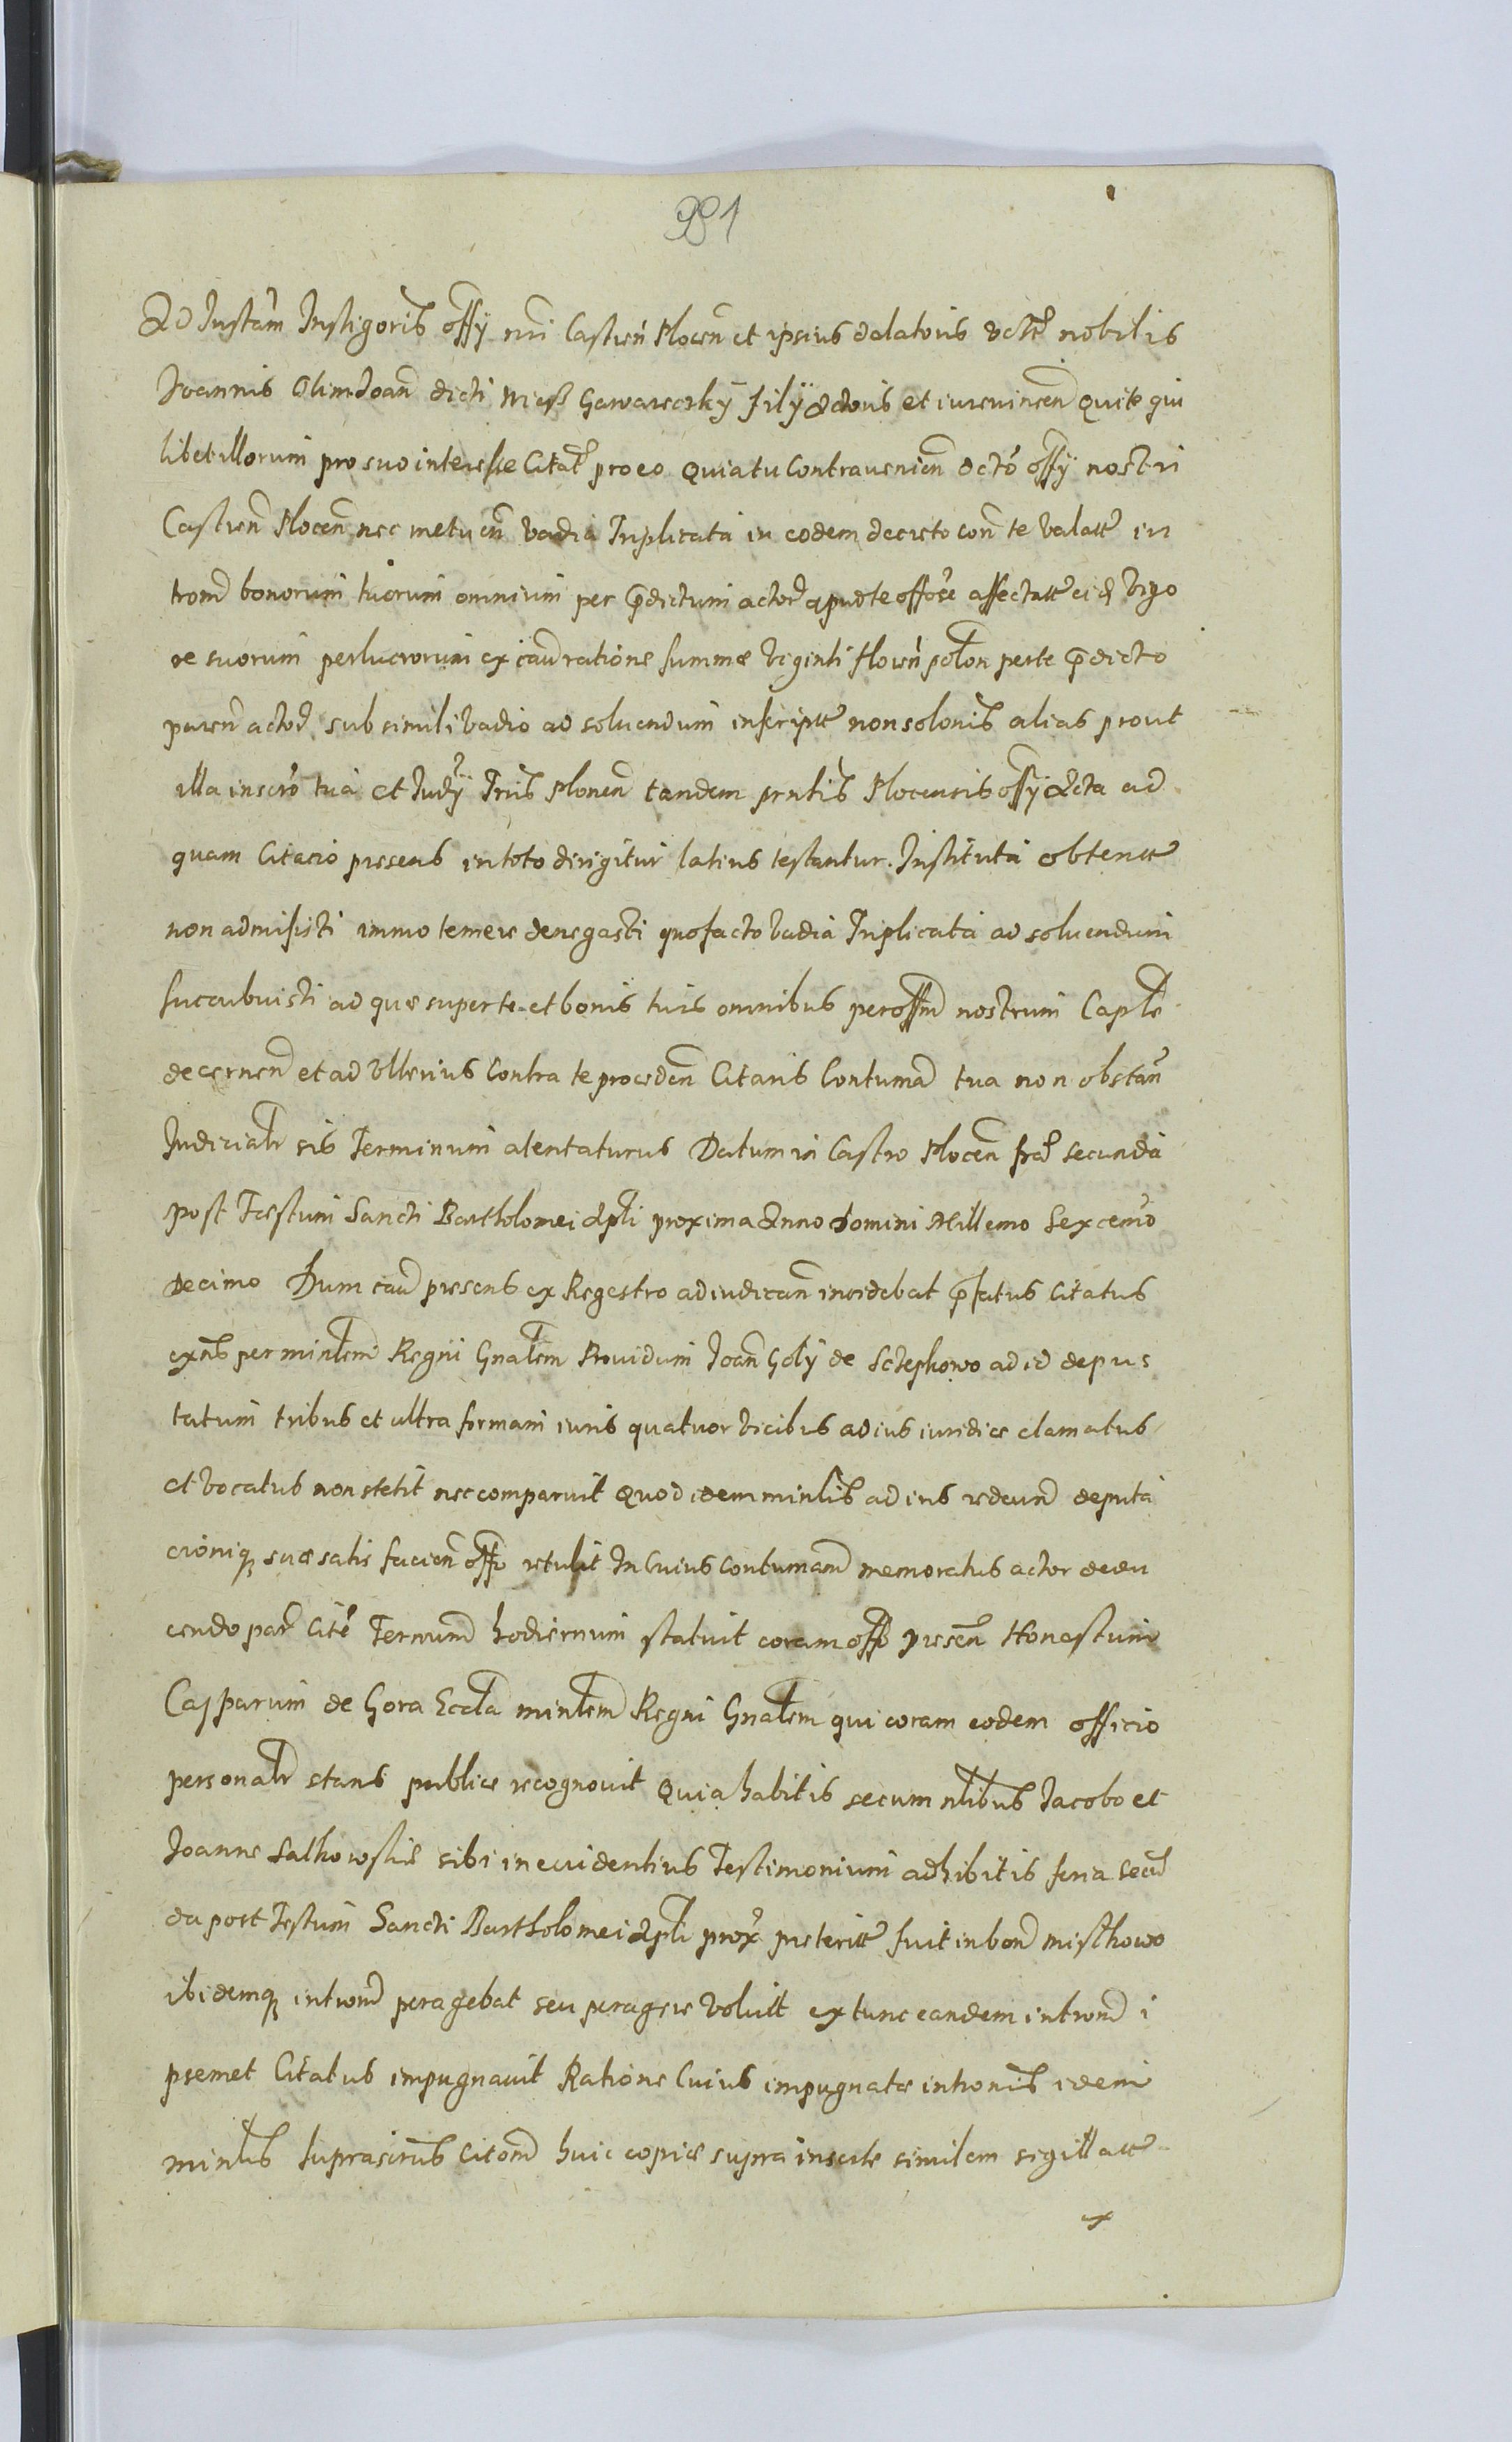 981
Ad Instam Instigoris offy nri Castren Plocen et ipsius delatoris nobilis
Joannis Olim Joan dicti Miesz Gawareczky filÿ Actoris et iurevincen Qui te qui
libet illorum pro suo interesse Citat pro eo Quia tu Contravenien dcto offy nostri
Castren Plocen nec metuen vadia Triplicata in eodem decreto con te valatt in
trom bonorum tuorum omnium per pdictum actor apud te offose affectatt eid vigo
re suorum perlucrorum ex cau ratione summæ viginti floren polon per te pdicto
paren actor sub simili vadio ad soluendum inscriptt non solonis alias prout
illa inscro tua et Judy Tris Plonen tandem prntis Plocensis offy Acta ad
quam Citacio presens in toto dirigitur latius testantur. Instituta obtentt
non admisisti immo temere denegasti quo facto vadia Triplicata ad soluendum
succubuisti ad quæ super te et bonis tuis omnibus per offm nostrum Caple
decernen et ad ulterius Contra te proceden Citaris Contumad tua non obstan
Judicialr sis Terminum atentaturus Datum in Castro Plocen fra secunda
post Festum Sancti Bartholomei Apli proxima Anno Domini Millemo Sexcemo
Decimo Dum cau presens ex Regestro ad iudican incidebat pfatus Citatus
exns per minlem Regni Gnalem Providum Joan Goly de Sctephowo ad id depus
tatum tribus et ultra formam iuris quatuor vicibus ad ius iuridice clamatus
et vocatus non stetit nec comparuit Quod idem minlis ad ius redeund deputa
cioniq suæ satis facien offo retulit In Cuius Contumam memoratus actor dedu
cendo par Cite Termum hodiernum statuit coram offo presen Honestum
Casparum de Gora Eccla minlem Regni Gnalem qui coram eodem officio
personalr stans publice recognouit Quia habitis secum nlibus Jacobo et
Joanne Salkowskie sibi in euidentius Testimonium adhibitis feria secu
da post Festum Sancti Bartholomei Apli prox preteritt fuit in bon misthowo
ibidemq introm peragebat seu peragere voluit ex tunc eandem introm i
psemet Citatus impugnauit Ratione Cuius impugnatæ intronis idem
minlis suprascrus Citom huic copiæ supra inscrte similem sigillatt
ex